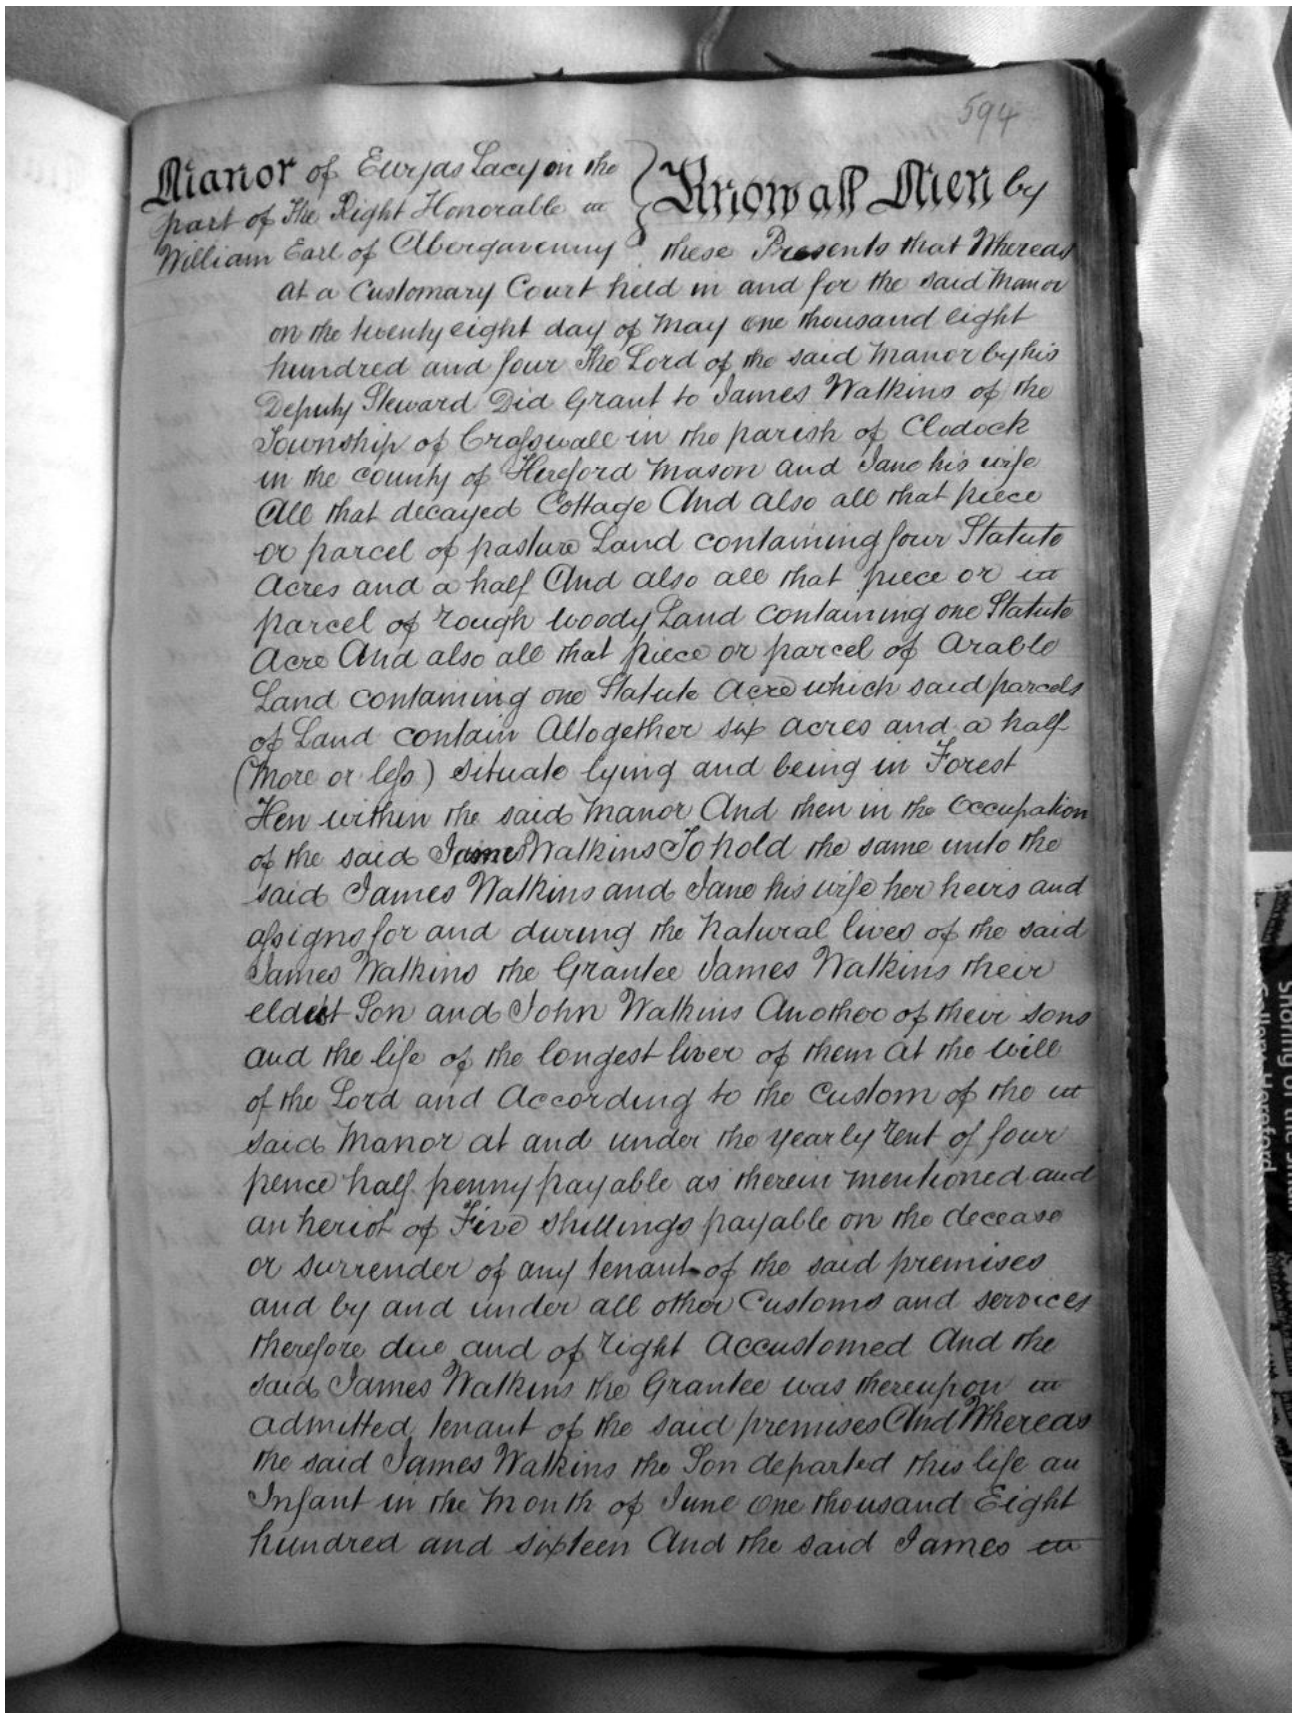 594
Manor of Ewyas Lacy on the
part of The Right Honorable
William Earl of Abergavenny
Know all Men by
these Presents that Whereas
at a Customary Court held in and for the said Manor
on the twenty eight day of May one thousand eight
hundred and four The Lord of the said Manor by his
Deputy Steward Did Grant to James Watkins of the
Township of Crasswall in the parish of Clodock
in the county of Hereford Mason and Jane his wife
All that decayed Cottage And also all that piece
or parcel of pasture Land containing four Statute
Acres and a half And also all that piece or
parcel of rough woody Land containing one Statute
Acre And also all that piece or parcel of Arable
Land containing one Statute Acre which said parcels
of Land contain Altogether six acres and a half
(More or less) situate lying and being in Forest
Hen within the said Manor And then in the Occupation
of the said James Watkins To hold the same unto the
said James Watkins and Jane his wife her heirs and
assigns for and during the Natural lives of the said
James Watkins the Grantee James Watkins their
eldest Son and John Watkins Another of their sons
and the life of the longest liver of them at the Will
of the Lord and According to the Custom of the
said Manor at and under the yearly rent of four
pence half penny payable as therein mentioned and
an heriot of Five shillings payable on the decease
or surrender of any tenant of the said premises
and by and under all other Customs and services
therefore due and of right Accustomed And the
said James Watkins the Grantee was thereupon
admitted tenant of the said premises And Whereas
the said James Watkins the Son departed this life an
Infant in the Month of June one thousand Eight
hundred and sixteen And the said James